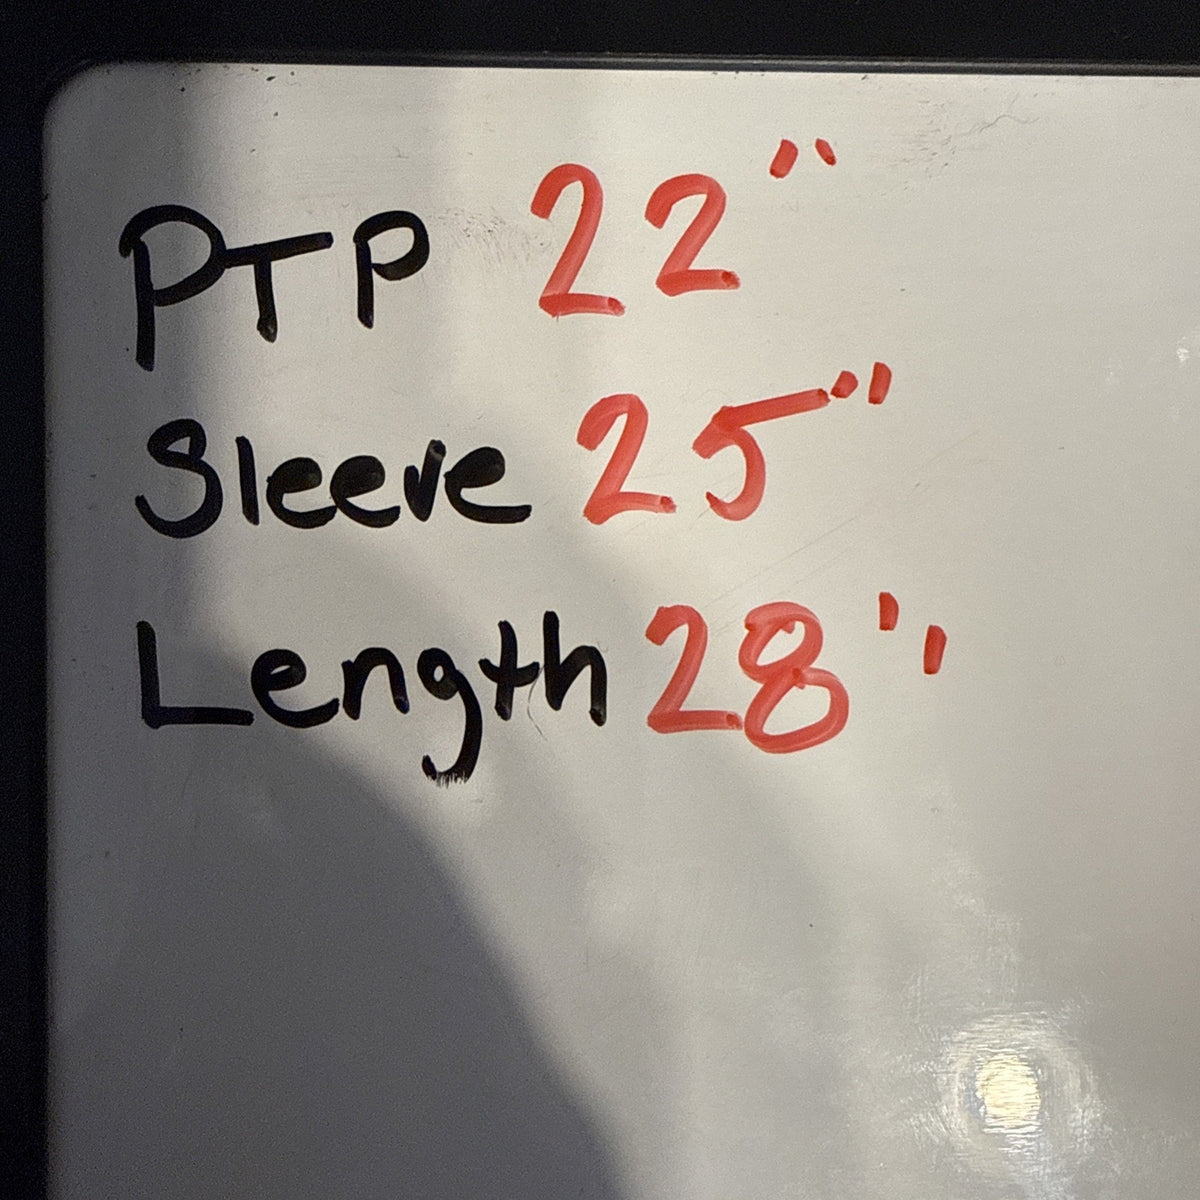 PTP 22"
Sleeve 25"
Length 28"